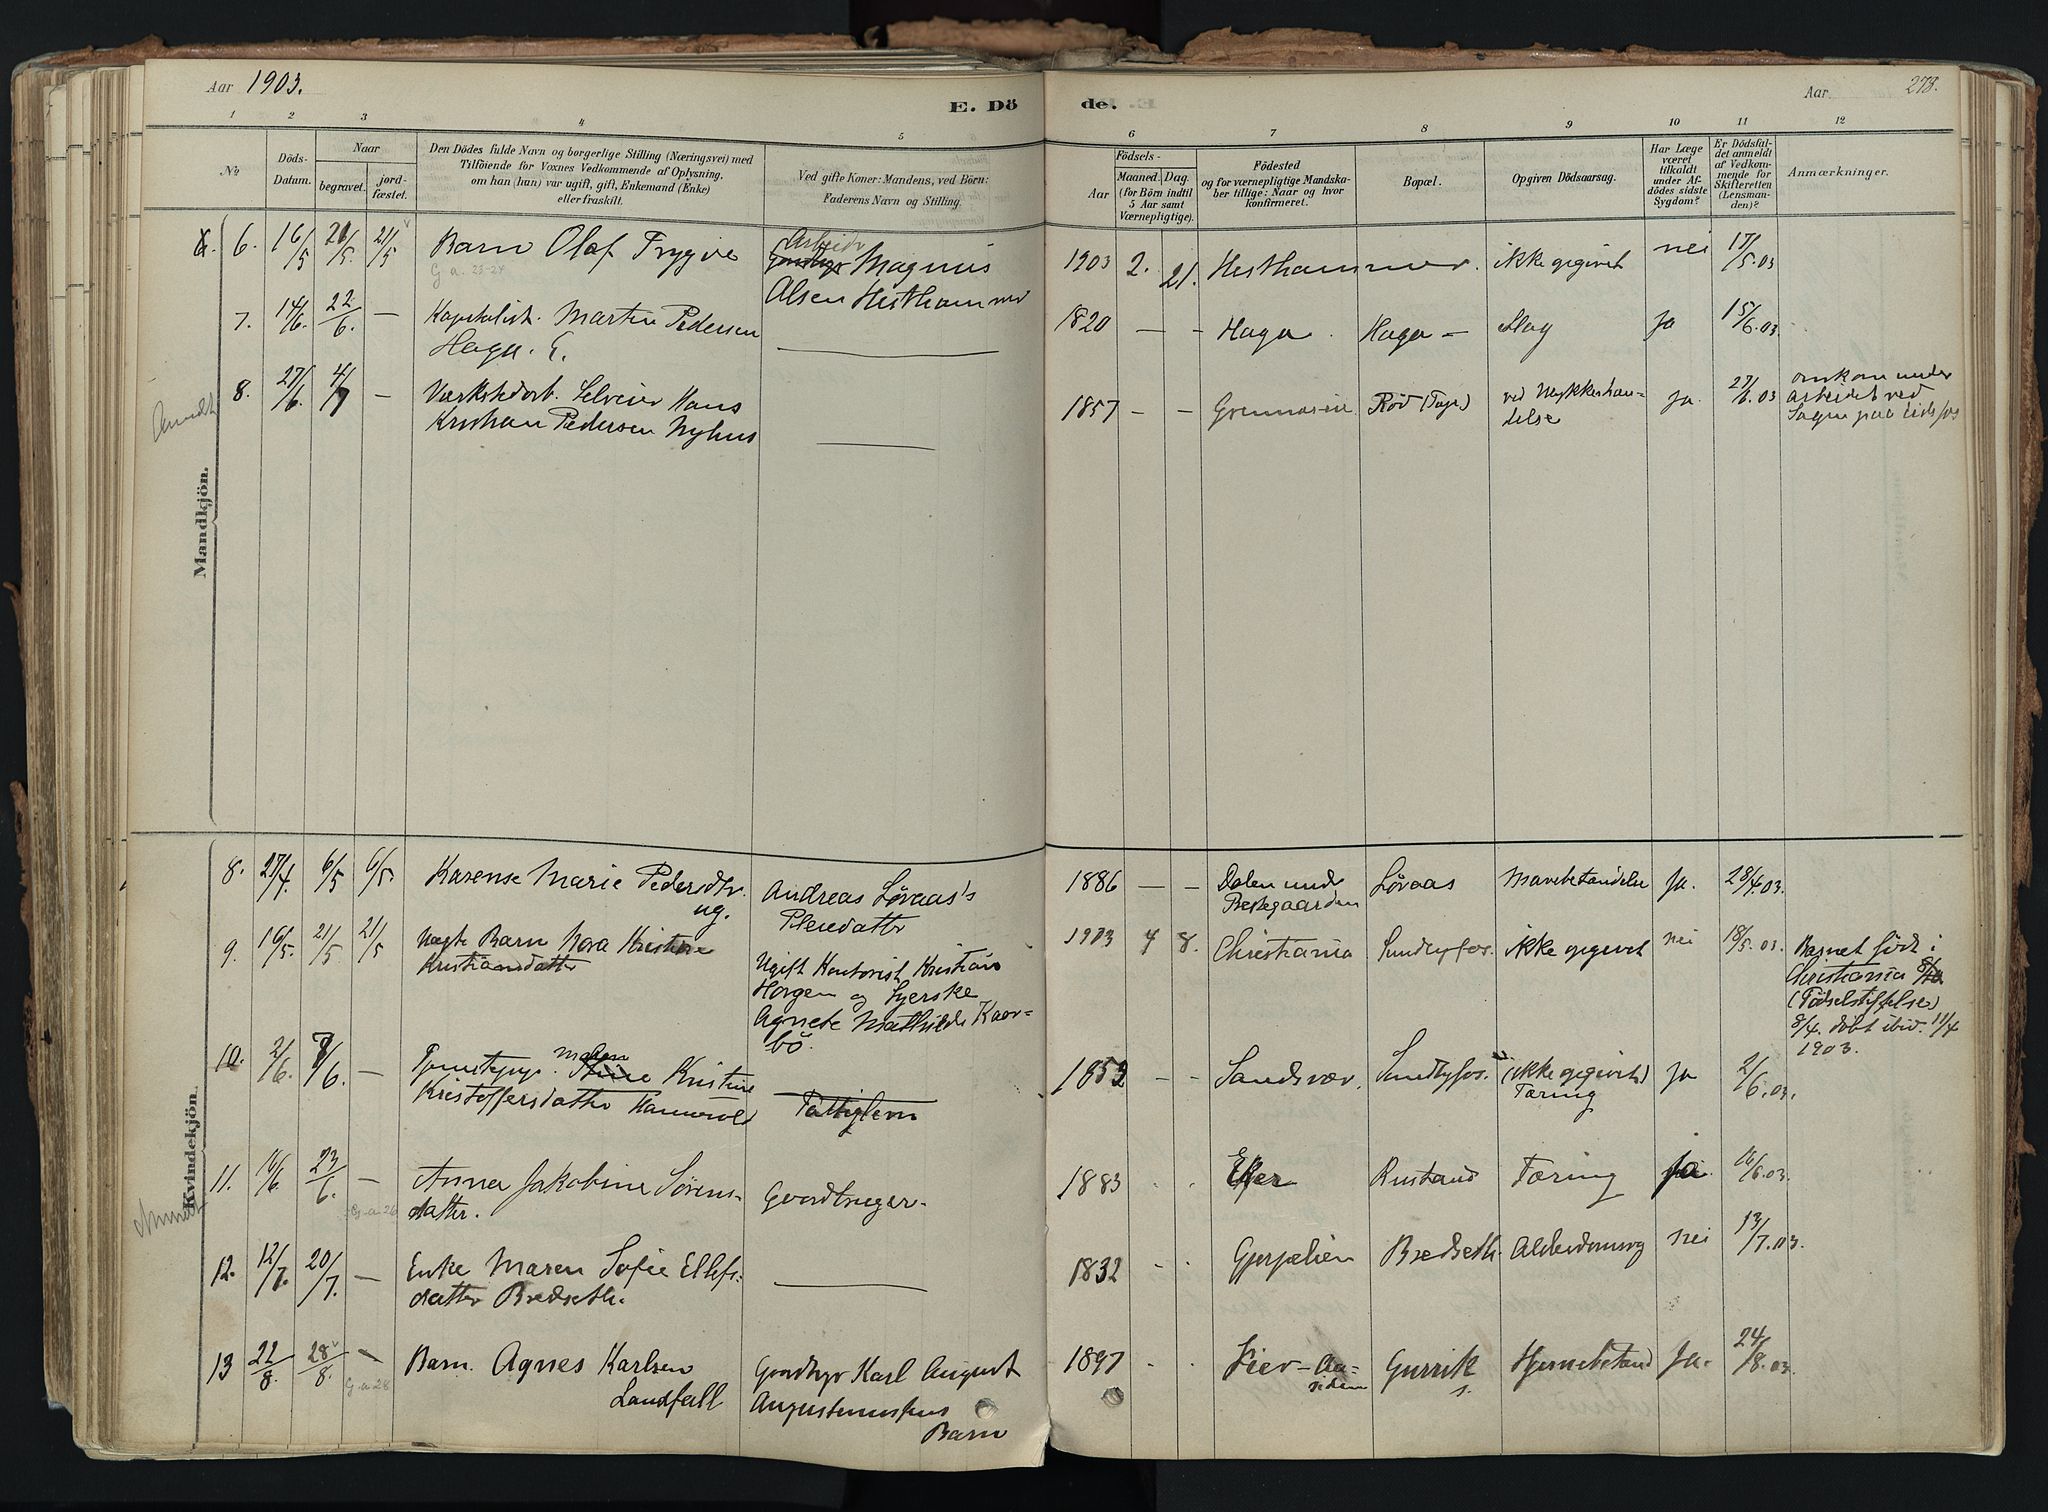 Aar 1903.
E. Dö de.
Aar 278.
1 2 3 4 5 6 7 8 9 10 11 12
No
Döds-Datum.
Naar
begravet.
jord-fæstet.
Den Dödes fulde Navn og borgerlige Stilling (Næringsvei) med
Tilföiende for Voxnes Vedkommende af Oplysning,
om han (hun) var ugift, gift, Enkemand (Enke)
eller fraskilt.
Ved gifte Koner: Mandens, ved Börn:
Faderens Navn og Stilling.
Födsels-
Aar
Maaned. Dag.
(for Börn indtil
5 Aar samt
Værnepligtige).
Födested
og for værnepligtige Mandska-
ber tillige: Naar og hvor
konfirmeret.
Bopæl.
Opgiven Dödsaarsag.
Har Læge
været
tilkaldt
under Af-
dödes sidste
Sygdom?
Er Dödsfal-
det anmeldt
af Vedkom-
mende for
Skifteretten
(Lensman-
den)?
Anmærkninger.
Mandkjön.
6. 16/5 21/5. 21/5 Barn Olaf Trygve
G a. 23-24
Arbeider
Magnus
Alsen Hesthammer
1903 2. 21. Hesthammer. ikke opgivet nei 17/5.03
7. 14/6. 22/6. — Kapitalist. Martin Pedersen
Haga. E.
1820 — — Haga. Haga — Slag Ja 15/6.03
8. 27/6. 4/7 — Værkstedarb. Selveier Hans
Kristian Pedersen Nyhus
1857 - - Rød ved Ulykkeshæn-
delse Ja. 27/6.03 omkom under
arbeidet ved
Sagen paa Eidsfos
Kvindekjön.
8. 27/4. 6/5 6/5. Karense Marie Pedersdtr.
ug.
Andreas Løvaas's
Pleiedatter
1886 — — Dalen under
Prestegaarden Løvaas Mavebetændelse Ja. 28/4.03.
9. 16/5. 21/5. 21/5 Uægte Barn Nora Kristine
Kristiansdatter
Ugift Kontorist Kristian
Horgen og Syerske
Agnete Mathilde Kaar-
bö.
1903 4 8. Christiania Sundbyfos. ikke opgivet nei 18/5.03. Barnet født i
Christiania 8/4
(Födselstiftelse)
8/4. döbt ibid. 11/4
1903.
10. 2/6. 7/6. — Tjenestepige. Maren Kristine
Kristoffersdatter
Fattiglem
1852 - - Sandsvær. Sundbyfos. (ikke opgivet)
Tæring Ja 2/6.03.
11. 16/6. 23/6. — Anna Jakobine Sörens-
datter.
G a 26
Gaardbruger.
1883 Eker Rustand Tæring Ja. 16/6.03.
12. 12/7. 20/7. — Enke Maren Sofie Ellefs-
datter Bredseth.
1832 Gjerpelien Bredseth. Alderdomssvag nei 13/7.03.
13 22/8. 28/8. — Barn. Agnes Karlsen
Landfall
G a 28
Gaardbgr Karl August
Augustinussens
Barn
1897 - - Hjernebetænd Ja. 24/8.03.